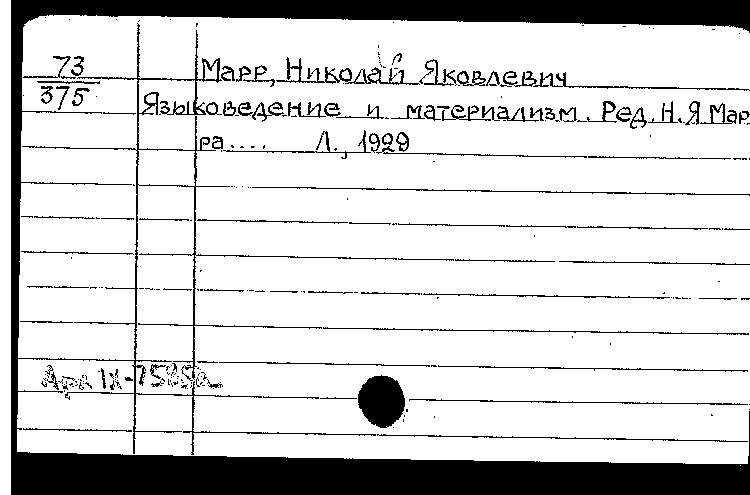 73 Марр, Николай Яковлевич
375 Языковедение и материализм. Ред. Н.Я Мар
ра.... Л., 1929
IX-